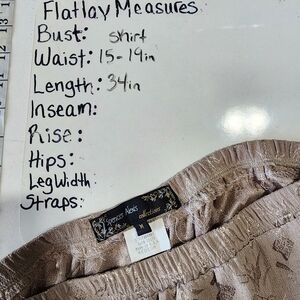 Flatlay Measures
Bust: skirt
Waist: 15-19in
Length: 34in
Inseam:
Rise:
Hips:
Leg Width:
Straps:
Spencer Alexis
collections
M